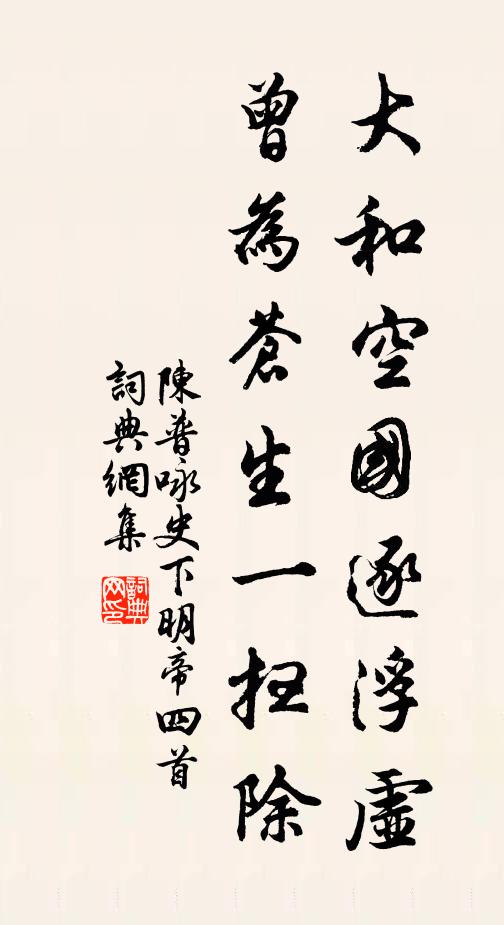 大和空國逐浮虛
曾為蒼生一扫除
陳普咏史下明帝四首
詞典網集